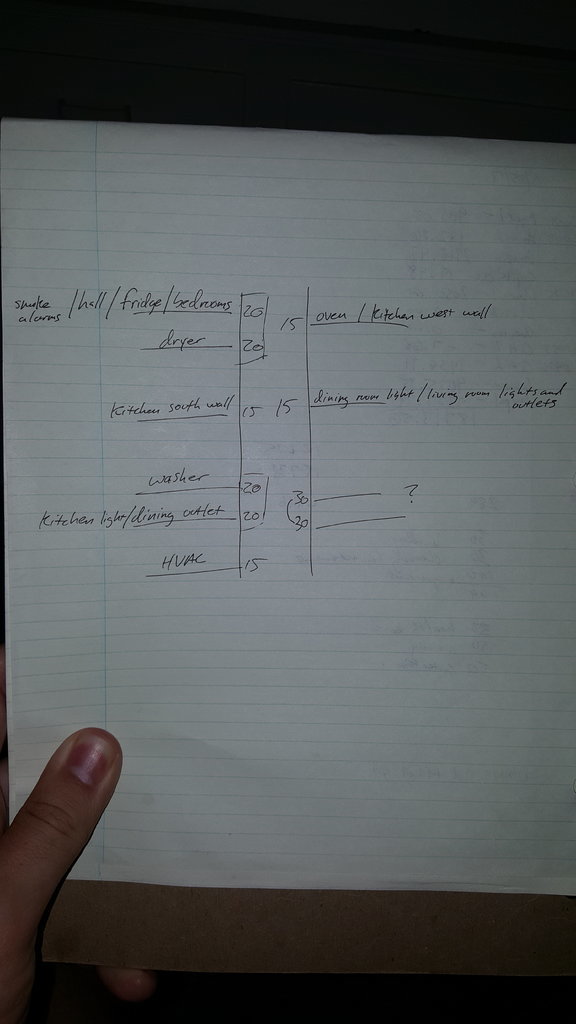 smoke alarms /hall/fridge/bedrooms 20
15 oven / Kitchen west wall
dryer 20
Kitchen south wall 15
15 dining room light/living room lights and outlets
washer 20
30 ?
Kitchen light/dining outlet 20
30
HVAC 15